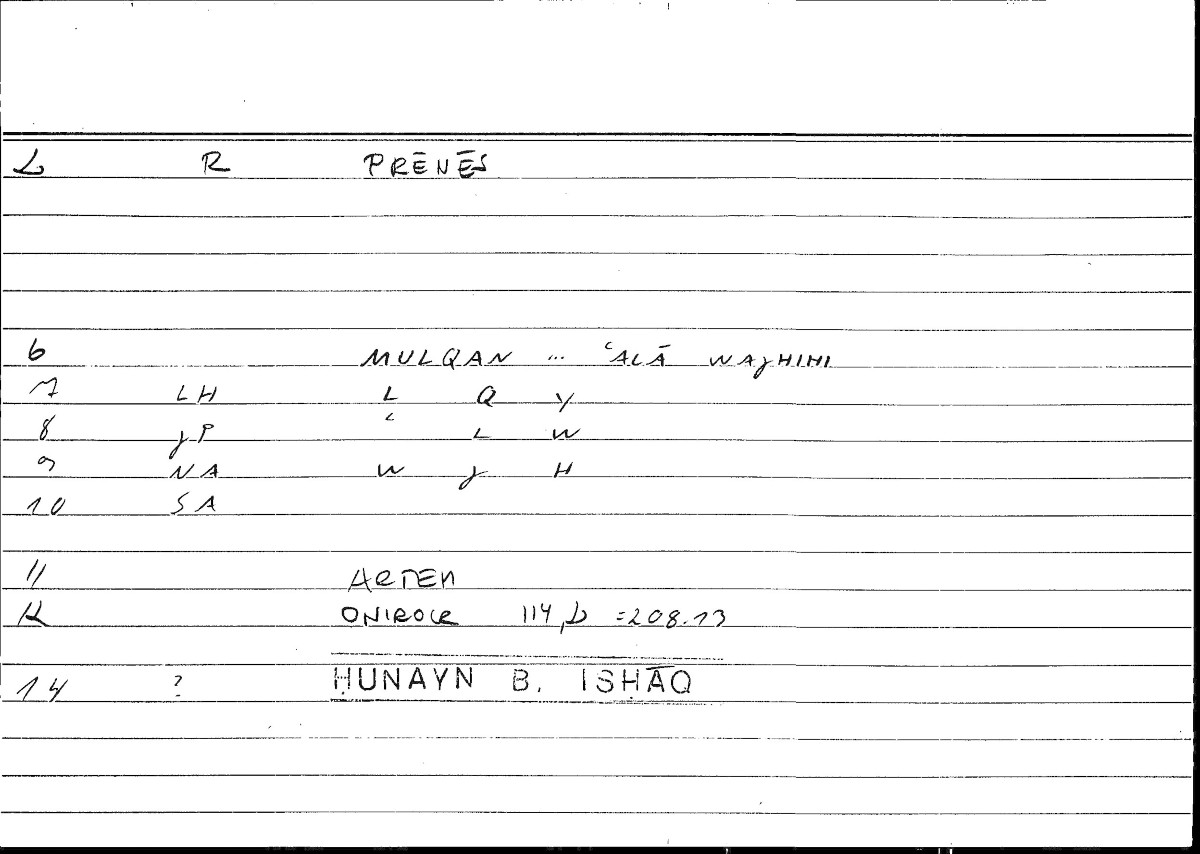 L R PRĒNĒS
6 MULQAN ... ʿALĀ WAJHIHI
7 LH L Q Y
8 JP ʿ L W
9 NA W J H
10 SA
11 ARTEM
12 ONIROCR 114,b =208.13
14 ? ḤUNAYN B. ISḤĀQ